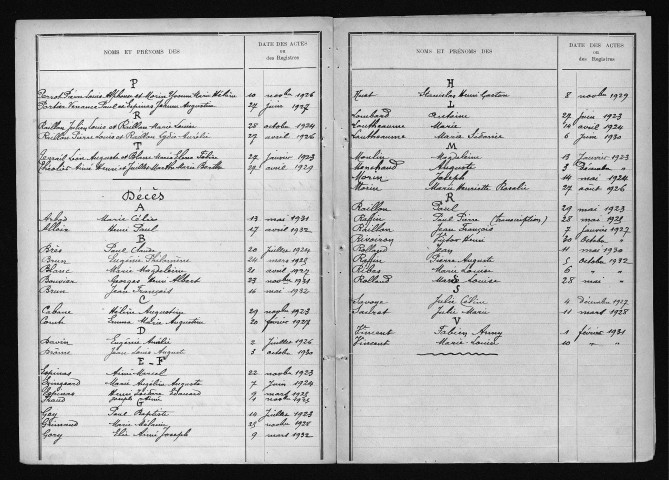 NOMS ET PRÉNOMS DES
DATE DES ACTES
ou
des Registres
P
Perrot Pierre Louis Alphonse et Morin Yvonne Marie Hélène 10 novbre 1926
Portier Venance Paul et Espinas Jeanne Augustine 27 juin 1927
R
Raillon Julien Louis et Raillon Marie Louise 28 octobre 1924
Raillon Pierre Louis et Raillon Lydie Aurélie 27 avril 1926
T
Terrail Léon Auguste et Blanc Marie Fabie 27 janvier 1923
Aimé Henri et Marthe Marie 27 avril 1929
Décès
A
Marie Célie 13 mai 1931
Allaix Henri Paul 17 avril 1932
B
Bès Paul Claude 20 Juillet 1924
Brun Eugénie Philomène 24 mars 1925
Blanc Marie Magdeleine 21 avril 1927
Bouvier Georges Henri Albert 23 novbre 1931
Brun Jean François 14 mai 1932
C
Cabane Hélène Augustine 29 novbre 1923
Comte Emma Marie Augustine 20 février 1927
D
Davin Eugénie Amélie 2 Juillet 1926
Brame Jean Louis August 5 octobre 1930
E-F
Espinas Aimé Marcel 22 novbre 1923
Marie Angéline Augusta 7 Juin 1924
Espinas Henri Isidore Edouard 9 mars 1925
Joseph Aimé 4 novbre
G
Gay Paul Baptiste 14 Juillet 1923
Grimaud Marie Mélanie 25 novbre 1928
Gory Elie Aimé Joseph 9 mars 1932
NOMS ET PRÉNOMS DES
DATE DES ACTES
ou
des Registres
H
Huat Stanislas Henri Gaston 8 novbre 1929
L
Lombard Antoine 27 Juin 1923
Lantheaume Marie 14 avril 1924
Lantheaume Marie 6 juin 1930
M
Moulin Magdeleine 13 Janvier 1923
Auguste 3 Décembre "
Morin Joseph 14 mai 1924
Morin Marie Henriette Rosalie 27 août 1926
R
Raillon Paul 29 mai 1923
Paul Pierre (transcription) 28 mai 1925
Raillon Jean François 7 janvier 1927
Revoiron Victor Henri 20 octobre "
Rolland Jean 11 mai 1930
Pierre Auguste 5 octobre 1932
Ribes Marie Louise 6 " "
Rolland Marie Louise 28 mai "
S
Savoye Julie Céline 4 Décembre 1927
Julie Marie 11 mars 1928
V
Vincent Fabien Anny 1 février 1931
Vincent Marie Louise 10 " "